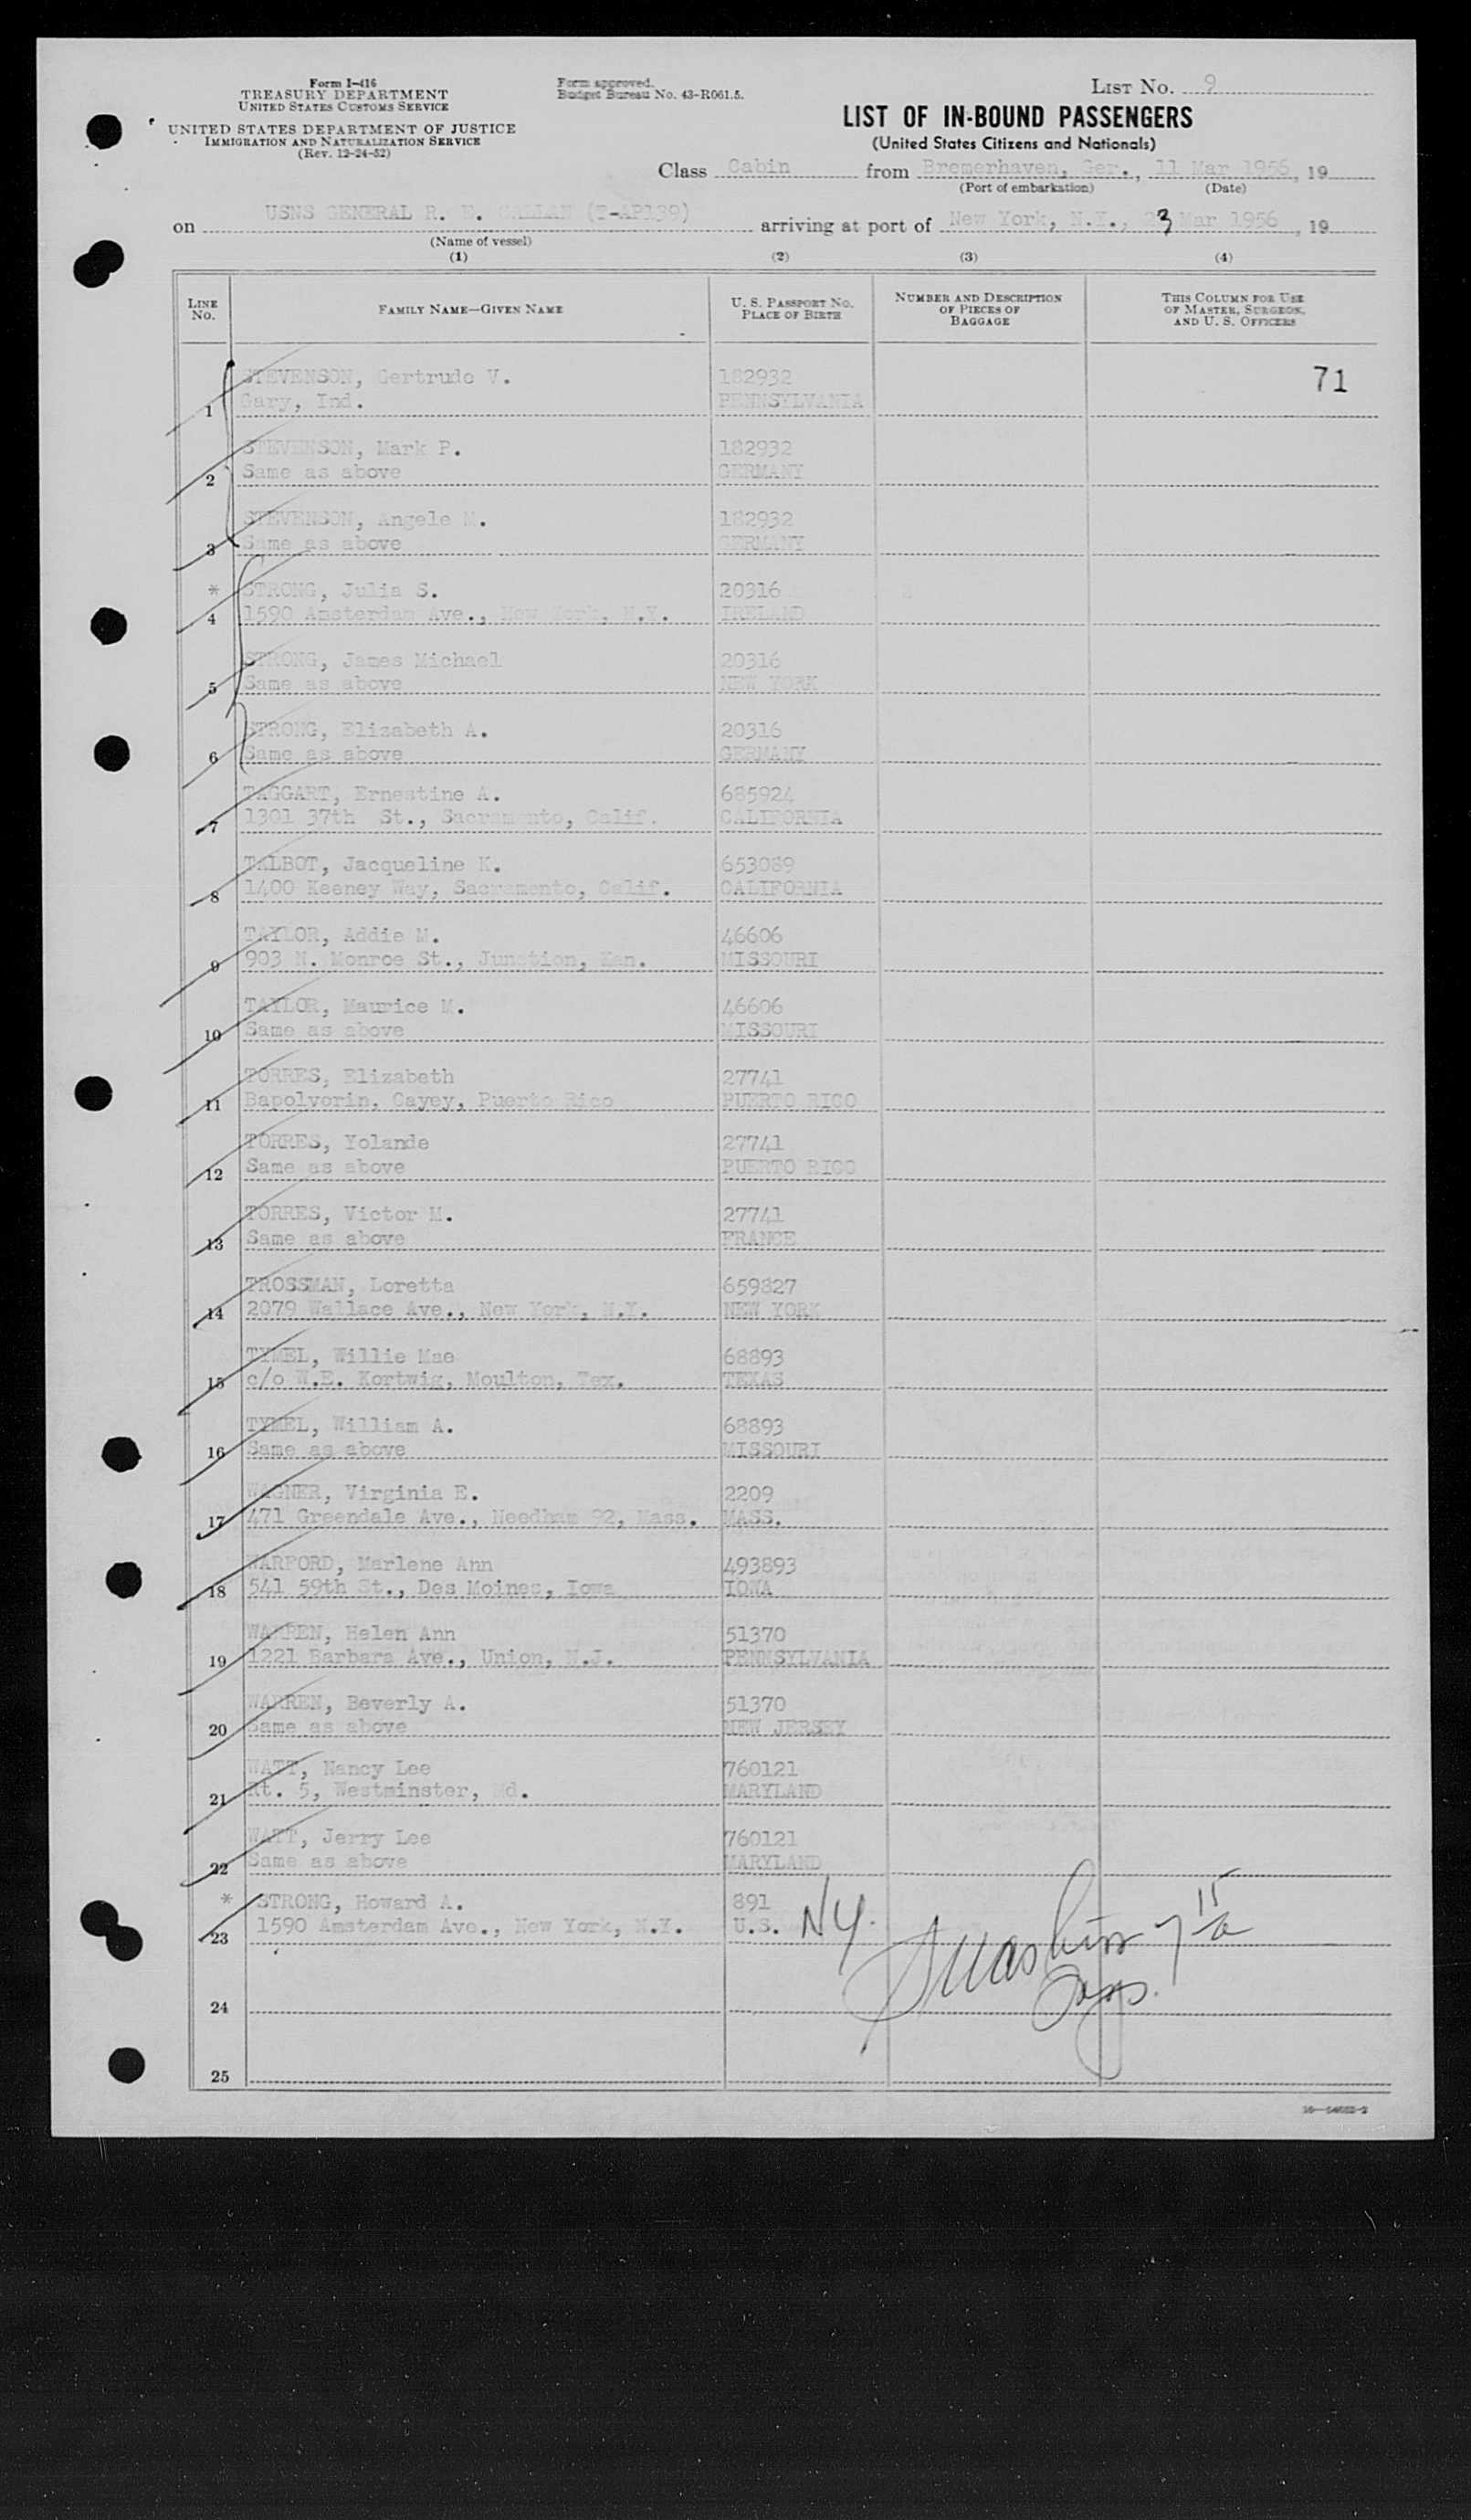 Form I-416
TREASURY DEPARTMENT
UNITED STATES CUSTOMS SERVICE
UNITED STATES DEPARTMENT OF JUSTICE
IMMIGRATION AND NATURALIZATION SERVICE
(Rev. 12-24-52)
Form approved.
Budget Bureau No. 43-R061.5.
LIST NO. 9
LIST OF IN-BOUND PASSENGERS
(United States Citizens and Nationals)
Class Cabin from Bremerhaven, Ger., 11 Mar 1956, 19
(Port of embarkation) (Date)
on USNS GENERAL R. E. CALLAN (T-AP139) arriving at port of New York, N.Y., 23 Mar 1956, 19
(Name of vessel)
(1) (2) (3) (4)
LINE NO. FAMILY NAME—GIVEN NAME U. S. PASSPORT NO. PLACE OF BIRTH NUMBER AND DESCRIPTION OF PIECES OF BAGGAGE THIS COLUMN FOR USE OF MASTER, SURGEON, AND U. S. OFFICERS
STEVENSON, Gertrude V. 182932 71
1 Gary, Ind. PENNSYLVANIA
STEVENSON, Mark P. 182932
2 Same as above GERMANY
STEVENSON, Angele M. 182932
3 Same as above GERMANY
* STRONG, Julia S. 20316
4 1590 Amsterdam Ave., New York, N.Y. IRELAND
STRONG, James Michael 20316
5 Same as above NEW YORK
STRONG, Elizabeth A. 20316
6 Same as above GERMANY
TAGGART, Ernestine A. 685924
7 1301 37th St., Sacramento, Calif. CALIFORNIA
TALBOT, Jacqueline K. 653089
8 1400 Keeney Way, Sacramento, Calif. CALIFORNIA
TAYLOR, Addie M. 46606
9 903 N. Monroe St., Junction, Kan. MISSOURI
TAYLOR, Maurice M. 46606
10 Same as above MISSOURI
TORRES, Elizabeth 27741
11 Bapolvorin, Cayey, Puerto Rico PUERTO RICO
TORRES, Yolande 27741
12 Same as above PUERTO RICO
TORRES, Victor M. 27741
13 Same as above FRANCE
TROSSMAN, Loretta 659827
14 2079 Wallace Ave., New York, N.Y. NEW YORK
TYMEL, Willie Mae 68893
15 c/o W.E. Kortwig, Moulton, Tex. TEXAS
TYMEL, William A. 68893
16 Same as above MISSOURI
WAGNER, Virginia E. 2209
17 471 Greendale Ave., Needham 92, Mass. MASS.
WARFORD, Marlene Ann 493893
18 541 59th St., Des Moines, Iowa IOWA
WARREN, Helen Ann 51370
19 1221 Barbara Ave., Union, N.J. PENNSYLVANIA
WARREN, Beverly A. 51370
20 Same as above NEW JERSEY
WATT, Nancy Lee 760121
21 Rt. 5, Westminster, Md. MARYLAND
WATT, Jerry Lee 760121
22 Same as above MARYLAND
* STRONG, Howard A. 891
23 1590 Amsterdam Ave., New York, N.Y. U.S. NY.
24
25